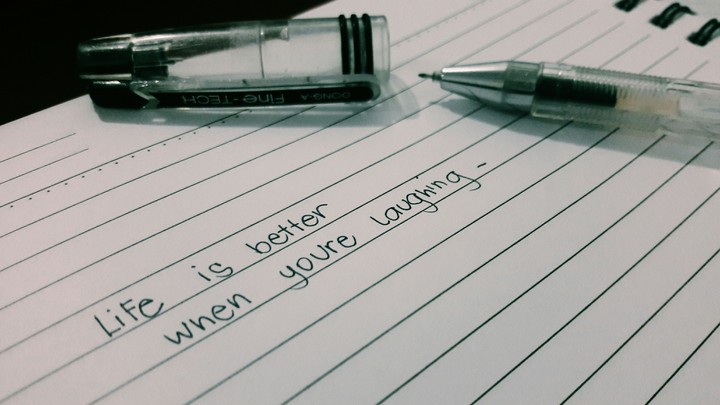 DONG-A Fine-TECH
Life is better
when youre laughing -